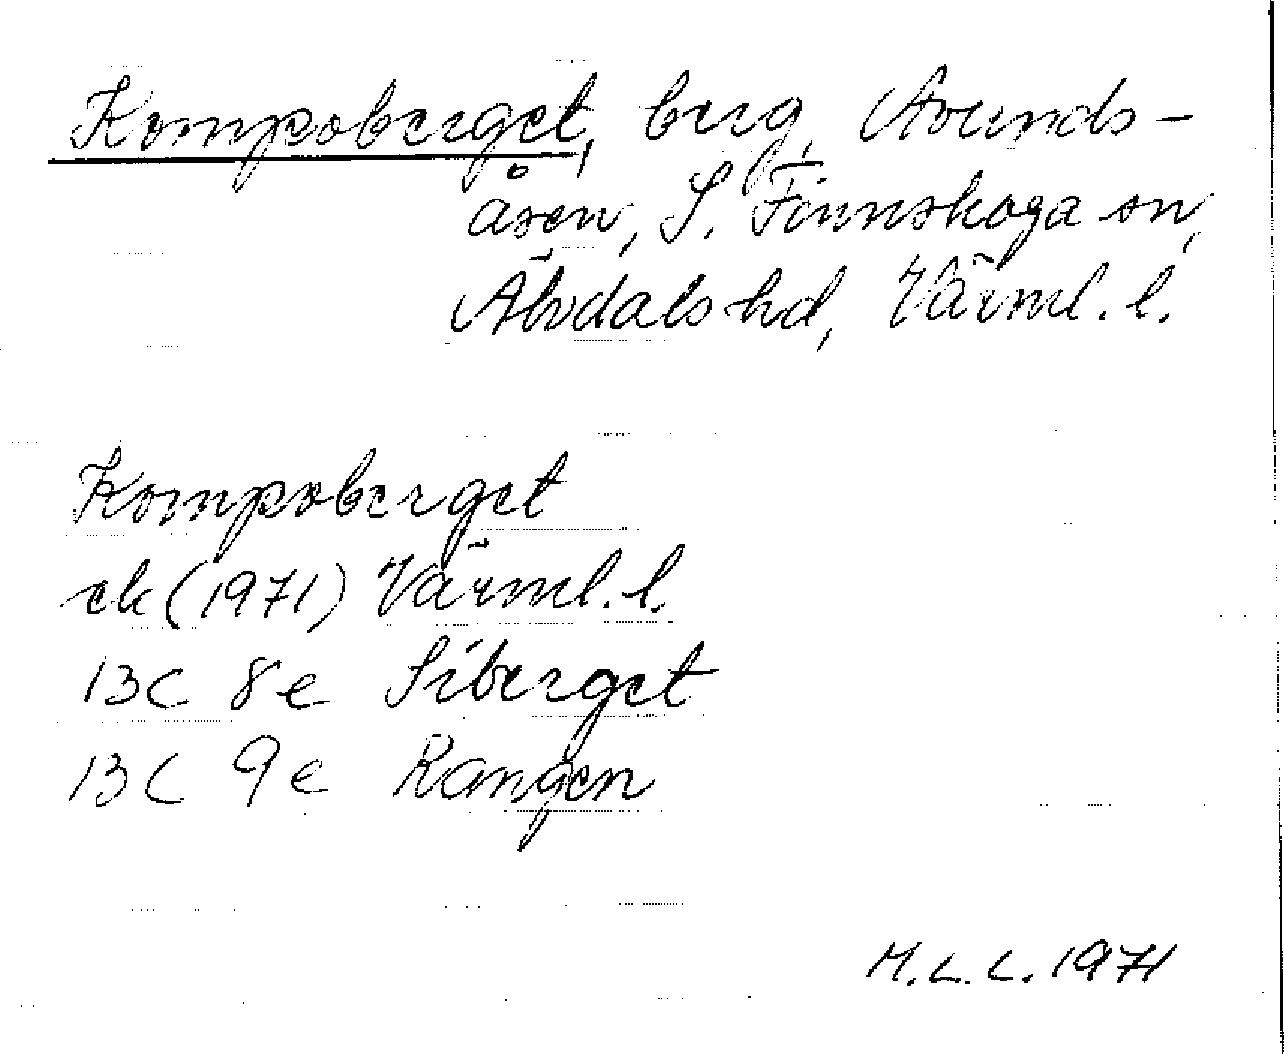 Kompsberget, berg, Avunds-
åsen, S. Finnskoga sn,
Älvdals hd, Värml. l.
Kompsberget
ek (1971) Värml. l.
13C 8e Siberget
13C 9e Rangen
M.L.L. 1971